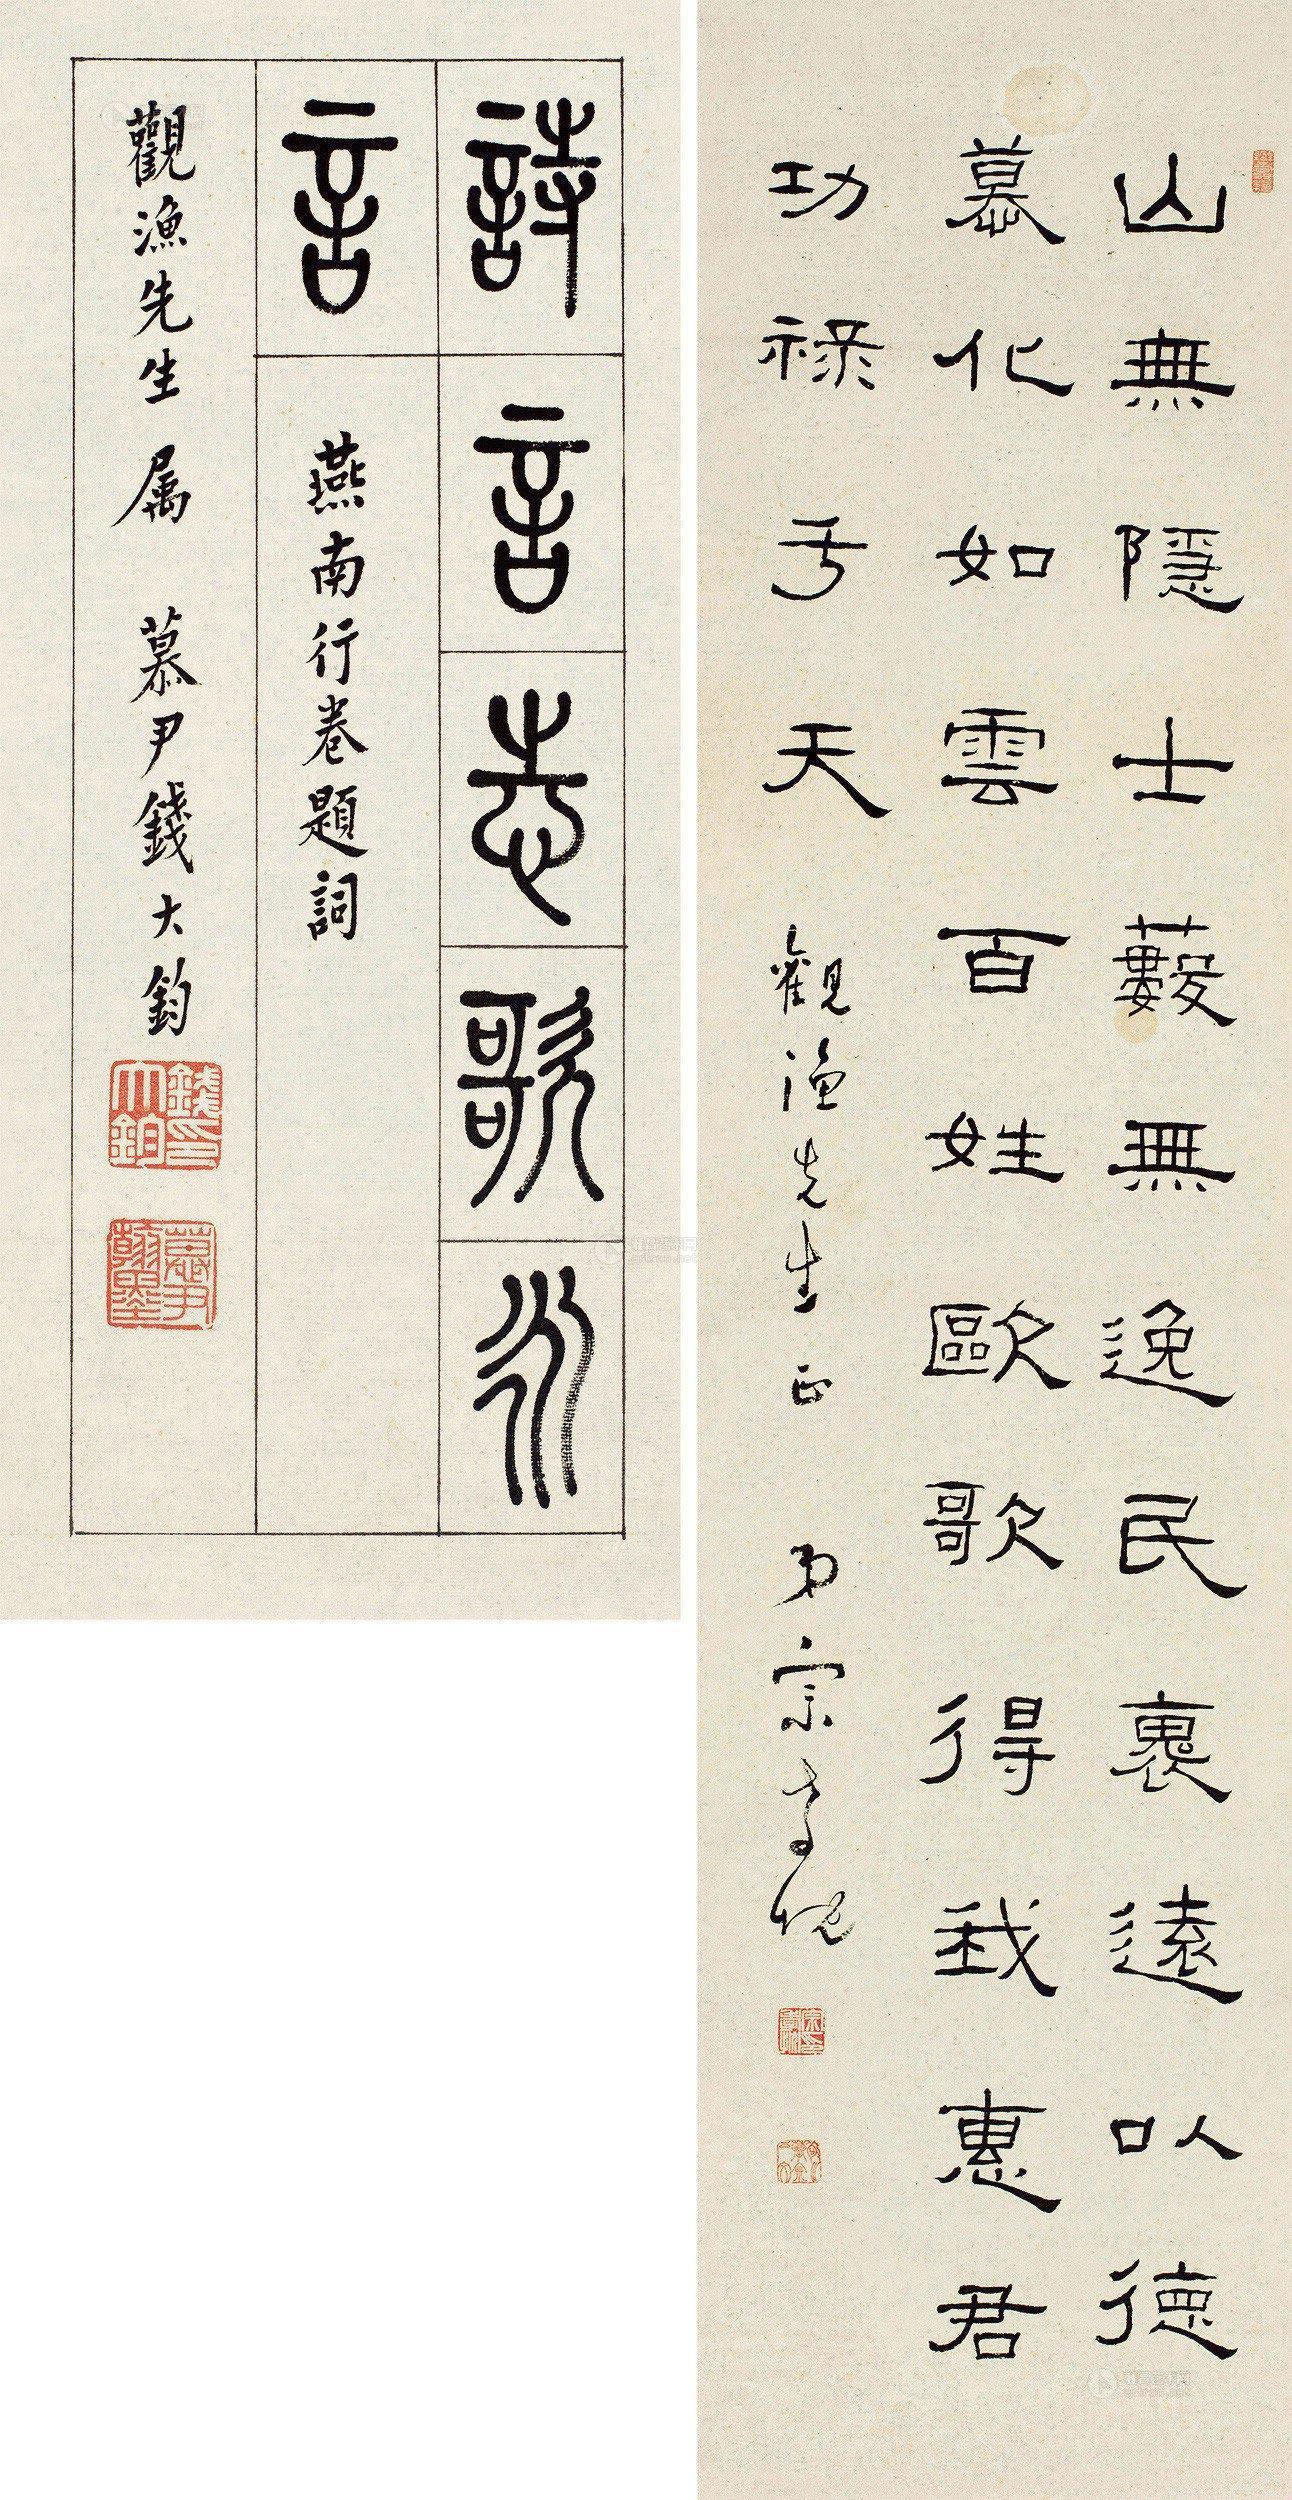 山無隱士藪無逸民褱遠以德
慕化如雲百姓歐歌得我惠君
功祿于天 觀漁先生正 弟宗孝忱
詩言志歌永
言 燕南行卷題詞
觀漁先生屬 慕尹錢大鈞
錢大鈞印
慕尹翰墨